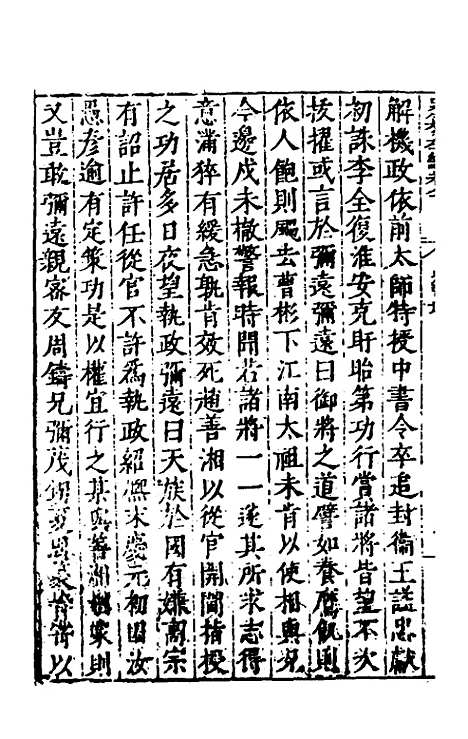 解機政依前太師特授中書令卒追封衞王謚忠獻
初誅李全復淮安克盱眙第功行賞諸將皆望不次
拔擢或言於彌遠彌遠曰御將之道譬如養鷹飢則
依人飽則颺去曹彬下江南太祖未肯以使相與况
今邊戍未撤警報時聞若諸將一一遂其所求志得
意滿猝有緩急孰肯效死趙善湘以從官開閫指授
之功居多日夜望執政彌遠曰天族於國有嫌高宗
有詔止許任從官不許爲執政紹熙末慶元初因汝
愚彥逾有定策功是以權宜行之某與善湘姻家則
又豈敢彌遠親密友周鑄兄彌茂甥夏周篆皆寄以